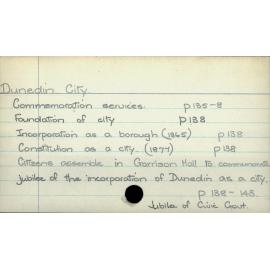 Dunedin City.
Commemoration services. p135-8
Foundation of city p138
Incorporation as a borough (1865) p138
Constitution as a city. (1877) p138
Citizens assemble in Garrison Hall to commemorate
jubilee of the incorporation of Dunedin as a city.
p 138-143.
Jubilee of Civic Govt.